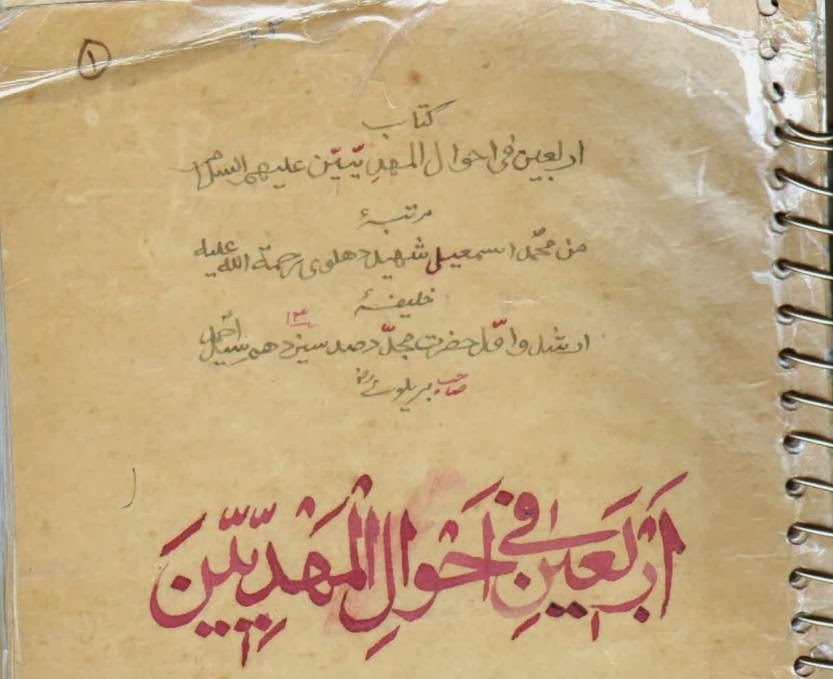 ۱
کتاب
اربعین فی احوال المهدیّین علیهم السلام
مرتبۂ
من محمد اسمعیل شهید دهلوی رحمة الله علیه
خلیفۂ
ارشد و اوّل حضرت مجدّد صد سیزدهم ۱۳ سید احمد
صاحب بریلوی رضؓ
اَرْبَعِیْنِ فِیْ اَحْوَالِ الْمَهْدِیِّیْنَ